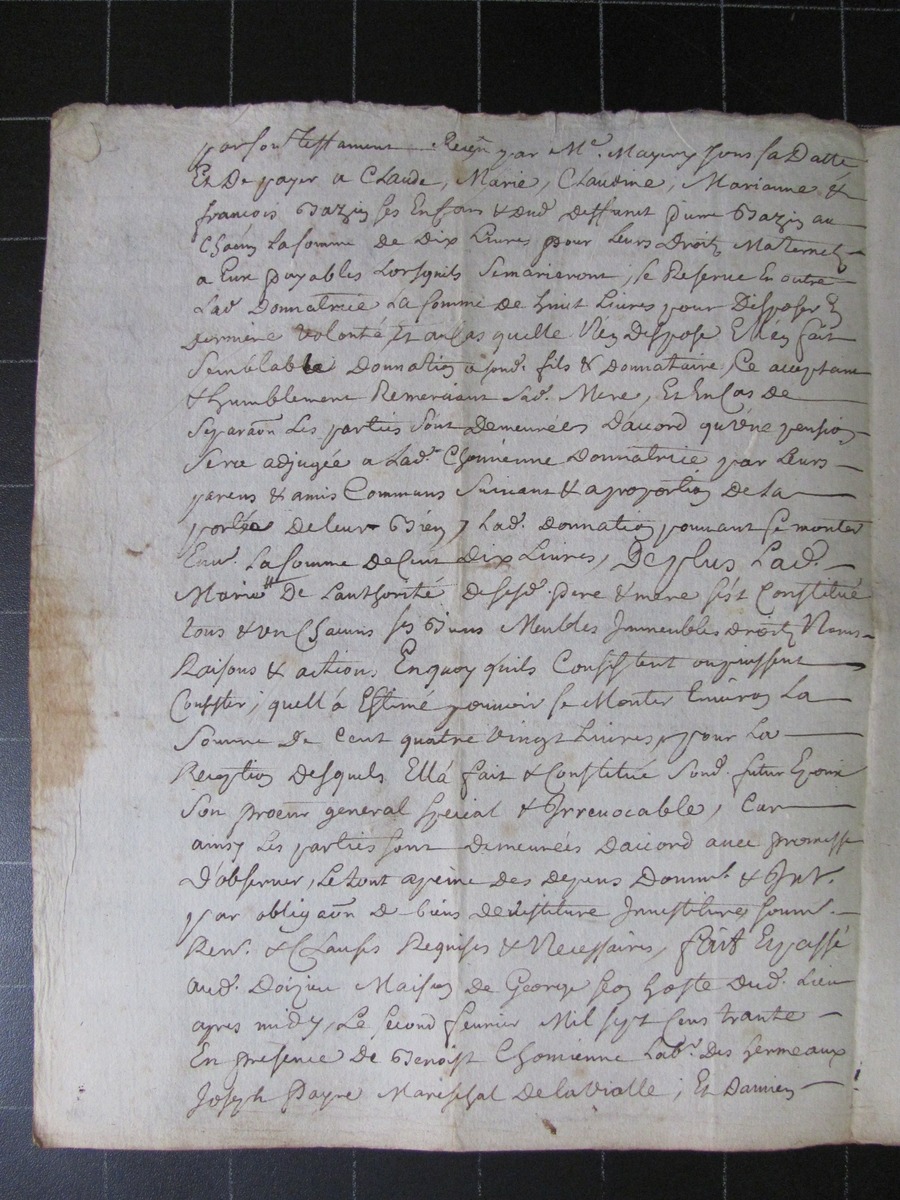 par son testament Receu par Me. Mayery sous sa Datte
Et De payer a Claude, Marie, Claudine, Marianne &
francois Bazin ses Enfans & dud. deffunt pierre Bazin au
Chacun La somme de Dix Livres pour Leurs Droits Maternels
a Eux payables Lorsquils Semarieront, se Reserve En outre
Lad. Donnatrice La somme de huit Livres pour Disposer En
derniere volonté Et au Cas quelle N'en dispose Ellen fait
Semblable Donnation a sond. fils & Donnataire, Ce acceptant
& humblement Remerciant sad. Mere, Et En Cas de
Separaon Les parties sont Demeurées D'acord qu'une pension
sera adjugée a Lad. Chomienne Donnatrice par Leurs
parens & amis Communs Suivant & a proportion De La
portée De leur Bien, Lad. Donnation pouvant se monter
Envn. La somme De Cent Dix Livres, De plus Lad.
Marie De L'authorité de sesd. pere & mere s'est Constitué
tous & un Chacuns ses Biens Meubles Immeubles droits Noms
Raisons & actions En quoy quils Consistent ou puissent
Consister, quell'a Estimé pouvoir se Monter Environ La
Somme De Cent quatre Vingt Livres, pour La
Reception Desquels Ell'a fait & Constitué Sond. futur Epoux
Son procur general special & Irrevocable, Car
ainsy Les parties sont Demeurées D'accord avec promesse
D'observer, Le tout a peine Des Depens Domm. & Int.
par obligaon De biens devestiture Investiture soum.
Ren. & Clauses Requises & Necessaires, fait Et passé
aud. Doizieu Maison de George hoste Dud. Lieu
apres midy, Le second fevrier Mil sept Cens trante
En presence De Benoist Chomienne Labr. Des hermeaux
Joseph Payre Mareschal De la vialle, Et Damien